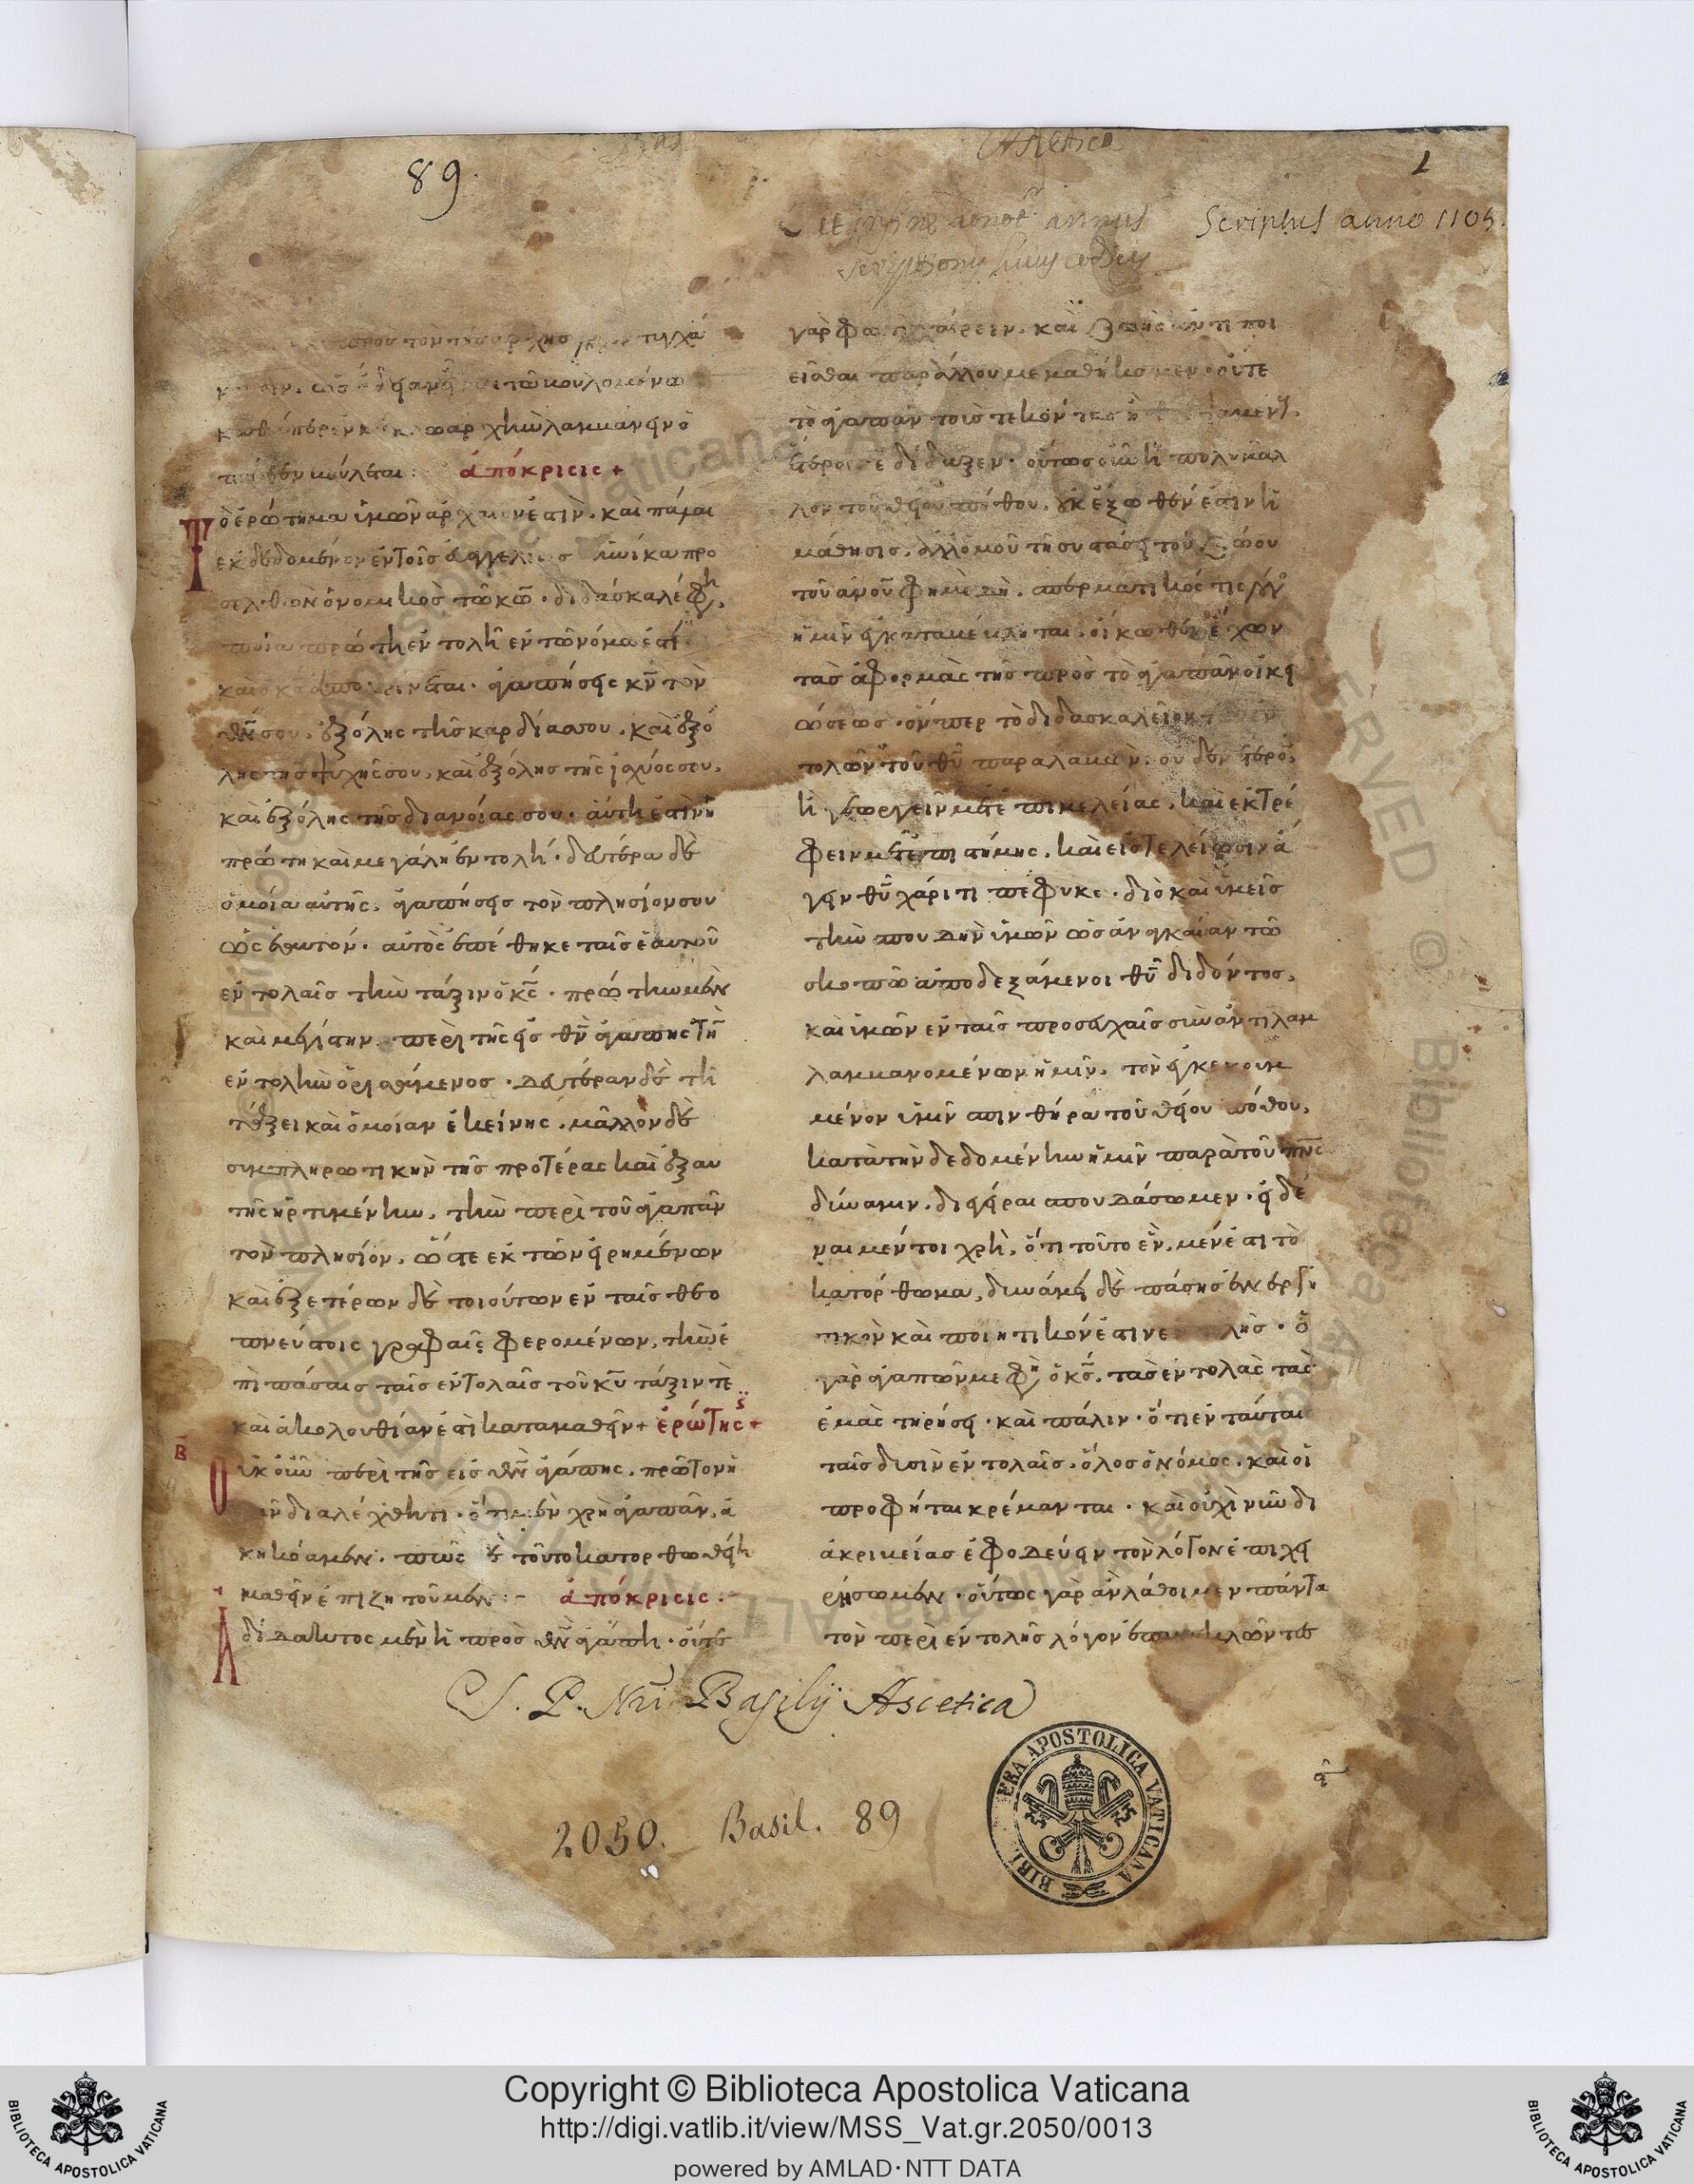 89
1
Scriptus anno 1105.
κούειν.
βούλεται: ἀπόκρισις +
Τὸ ἐρώτημα ὑμῶν ἀρχαῖόν ἐστιν. καὶ πάλαι
ἐκδεδομένον ἐν τοῖς εὐαγγελίοις ἡνίκα προ
σελθὼν ὁ νομικὸς τῶ κῶ. διδάσκαλέ φη,
ποία πρώτη ἐντολὴ ἐν τῶ νόμω ἐστί
καὶ ὁ κς ἀποκρίνεται. ἀγαπήσεις κν τὸν
θν σου. ἐξ ὅλης τῆς καρδίας σου. καὶ ἐξ ὅ
λης τῆς ψυχῆς σου. καὶ ἐξ ὅλης τῆς ἰσχύος σου.
καὶ ἐξ ὅλης τῆς διανοίας σου. αὕτη ἐστὶν ἡ
πρώτη καὶ μεγάλη ἐντολή. δευτέρα δὲ
ὁμοία αὐτῆς. ἀγαπήσεις τὸν πλησίον σου
ὡς ἑαυτόν. αὐτὸς ἐπέθηκε ταῖς ἑαυτοῦ
ἐντολαῖς τὴν τάξιν ὁ κς. πρώτην μὲν
καὶ μεγίστην. περὶ τῆς εἰς θν ἀγάπης τὴν
ἐντολὴν ὁρισάμενος. δευτέραν δὲ τῆ
τάξει καὶ ὁμοίαν ἐκείνης. μᾶλλον δὲ
συμπληρωτικὴν τῆς προτέρας καὶ ἐξ αυ
τῆς ἠρτημένην. τὴν περὶ τοῦ ἀγαπᾶν
τὸν πλησίον. ὥστε ἐκ τῶν εἰρημένων
καὶ ἐξ ἑτέρων δὲ τοιούτων ἐν ταῖς θεο
πνεύστοις γραφαῖς φερομένων, τὴν ἐ
πὶ πάσαις ταῖς ἐντολαῖς τοῦ κυ τάξιν τὲ
καὶ ἀκολουθίαν ἐστὶ καταμαθεῖν + ἐρώτησς +
Β
Οὐκοῦν περὶ τῆς εἰς θν ἀγάπης. πρῶτον ἡ
μῖν διαλέχθητι. ὅτι μὲν χρὴ ἀγαπᾶν, ἀ
κηκόαμεν. πῶς δὲ τοῦτο κατορθωθείη
μαθεῖν ἐπιζητοῦμεν:- ἀπόκρισις:-
Ἀδίδακτος μὲν ἡ πρὸς θν ἀγάπη. οὔτε
γὰρ φωτὶ χαίρειν. καὶ ζωῆς ἀντιποι
εῖσθαι παρ' ἄλλου μεμαθήκαμεν. οὔτε
τὸ ἀγαπᾶν τοὺς τεκόντας ἢ
ἕτερος ἐδίδαξεν. οὕτως οὖν ἢ πολὺ μᾶλ
λον τοῦ θείου πόθου. οὐκ ἔξωθέν ἐστιν ἡ
μάθησις. ἀλλ' ὁμοῦ τῆ συστάσει τοῦ ζώου
τοῦ ἀνου φημὶ δὴ. σπερματικός τις λόγος
ἡμῖν ἐγκαταβέβληται. οἴκωθεν ἔχων
τὰς ἀφορμὰς τῆς πρὸς τὸ ἀγαπᾶν οἰκει
ώσεως. ὅνπερ τὸ διδασκαλεῖον τῶν ἐν
τολῶν τοῦ θυ παραλαβὼν.
γεωργεῖν μετ' ἐπιμελείας. καὶ ἐκτρέ
φειν μετ' ἐπιστήμης. καὶ εἰς τελείωσιν ἄ
γειν θυ χάριτι πέφυκε. διὸ καὶ ἡμεῖς
τὴν σπουδὴν ὑμῶν ὡς ἀναγκαίαν τῶ
σκοπῶ ἀποδεξάμενοι θυ διδόντος.
καὶ ὑμῶν ἐν ταῖς προσευχαῖς συναντιλαμ
λαμβανομένων ἡμῖν. τὸν ἐγκεκρυμ
μένον ὑμῖν σπινθῆρα τοῦ θείου πόθου.
κατὰ τὴν δεδομένην ἡμῖν παρὰ τοῦ πνς
δύναμιν. διεγεῖραι σπουδάσωμεν. εἰδέ
ναι μέντοι χρὴ, ὅτι τοῦτο ἓν, μὲν ἐστι τὸ
κατόρθωμα, δυνάμει δὲ πάσης ἐνεργη
τικὸν καὶ ποιητικόν ἐστιν ἐντολῆς. ὁ
γὰρ ἀγαπῶν με φη ὁ κς. τὰς ἐντολὰς τὰς
ἐμὰς τηρήσει. καὶ πάλιν. ὅτι ἐν ταύταις
ταῖς δυσὶν ἐντολαῖς. ὅλος ὁ νόμος. καὶ οἱ
προφῆται κρέμανται. καὶ οὐχὶ νῦν δι
ἀκριβείας ἐφοδεύειν τὸν λόγον ἐπιχει
ρήσωμεν. οὕτως γὰρ ἂν λάθοιμεν πάντα
τὸν περὶ ἐντολῆς λόγον
S. P. Nri Basilij Ascetica
2050. Basil. 89
BIBLIOTHECA APOSTOLICA VATICANA
Copyright © Biblioteca Apostolica Vaticana
http://digi.vatlib.it/view/MSS_Vat.gr.2050/0013
powered by AMLAD·NTT DATA
BIBLIOTECA APOSTOLICA VATICANA
BIBLIOTECA APOSTOLICA VATICANA